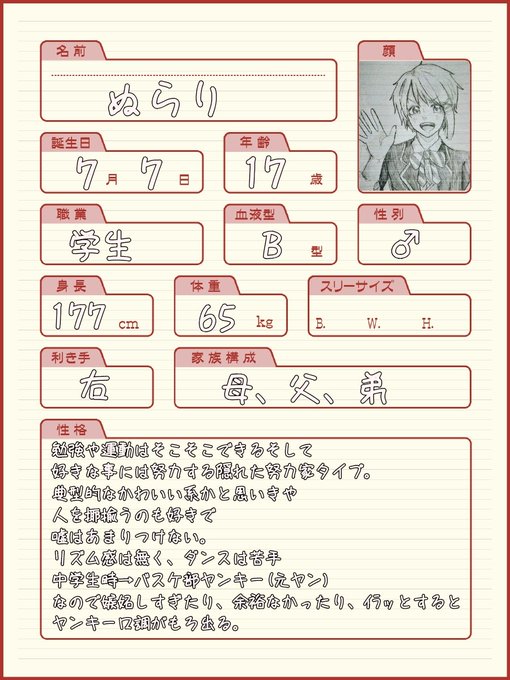 名前
顔
ぬらり
誕生日
年齢
7月 7日
17歳
職業
血液型
性別
学生
B型
♂
身長
体重
スリーサイズ
177cm
65kg
B. W. H.
利き手
家族構成
右
母、父、弟
性格
勉強や運動はそこそこできるそして
好きな事には努力する隠れた努力家タイプ。
典型的なかわいい系かと思いきや
人を揶揄うのも好きで
嘘はあまりつけない。
リズム感は無く、ダンスは苦手
中学生時→バスケ部ヤンキー(元ヤン)
なので嫉妬しすぎたり、余裕なかったり、イラッとすると
ヤンキー口調がもろ出る。